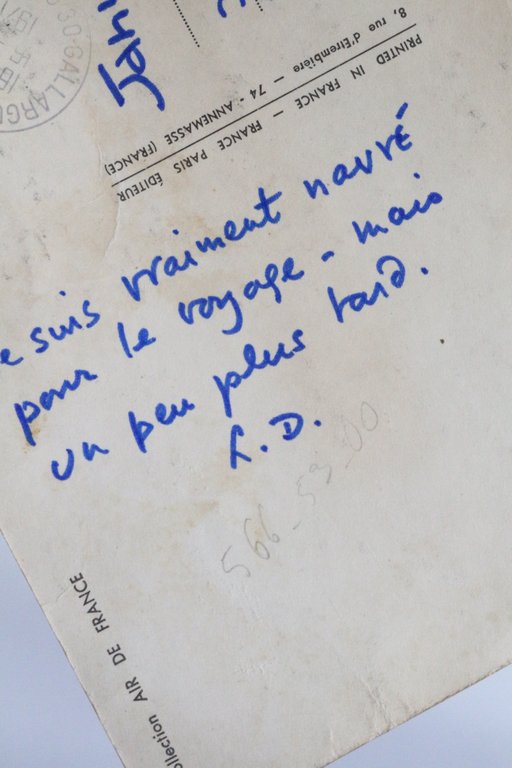 30 GALLARG
8, rue d'Erembière — 74 - ANNEMASSE (FRANCE)
PRINTED IN FRANCE — FRANCE PARIS ÉDITEUR
e suis vraiment navré
pour le voyage - mais
un peu plus tard.
L.D.
566-53-00
ollection AIR DE FRANCE